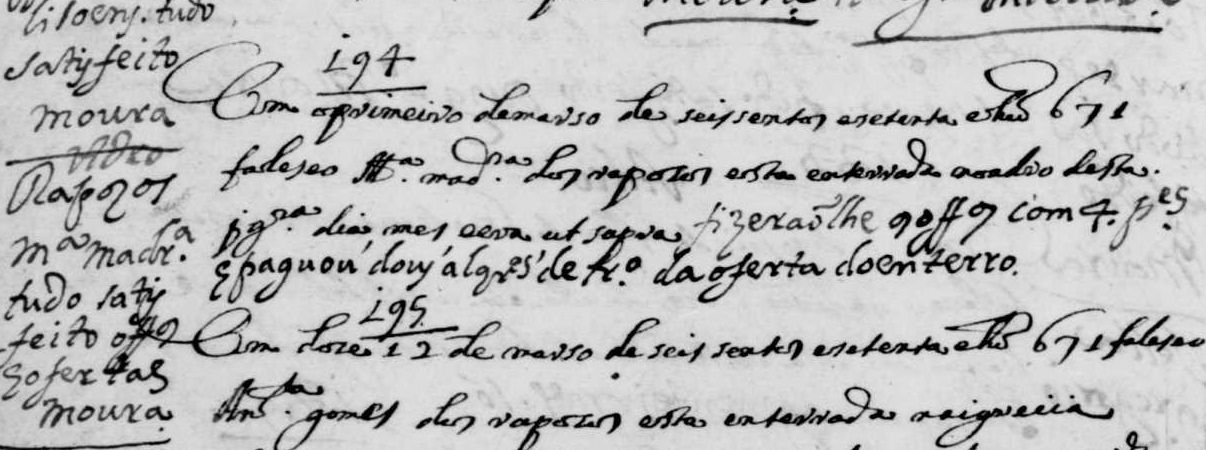 satisfeito
moura
Rapozos
Ma. madra.
tudo satis
feito offos
E ofertas
moura.
194
Em oprimeiro demarso de seissentos esetenta ehũ 671
faleseo Ma. madra. dos rapozos esta enterrada noadro desta
jgra. dia mes eera ut sapra fizeraõlhe 9 offos com 4. pes.
E paguou dous alqres de tro. da oferta doenterro.
195
Em doze 12 de marso de seissentos esetenta ehũ 671 faleseo
Anta. gomes dos rapozos esta enterrada naigrecia